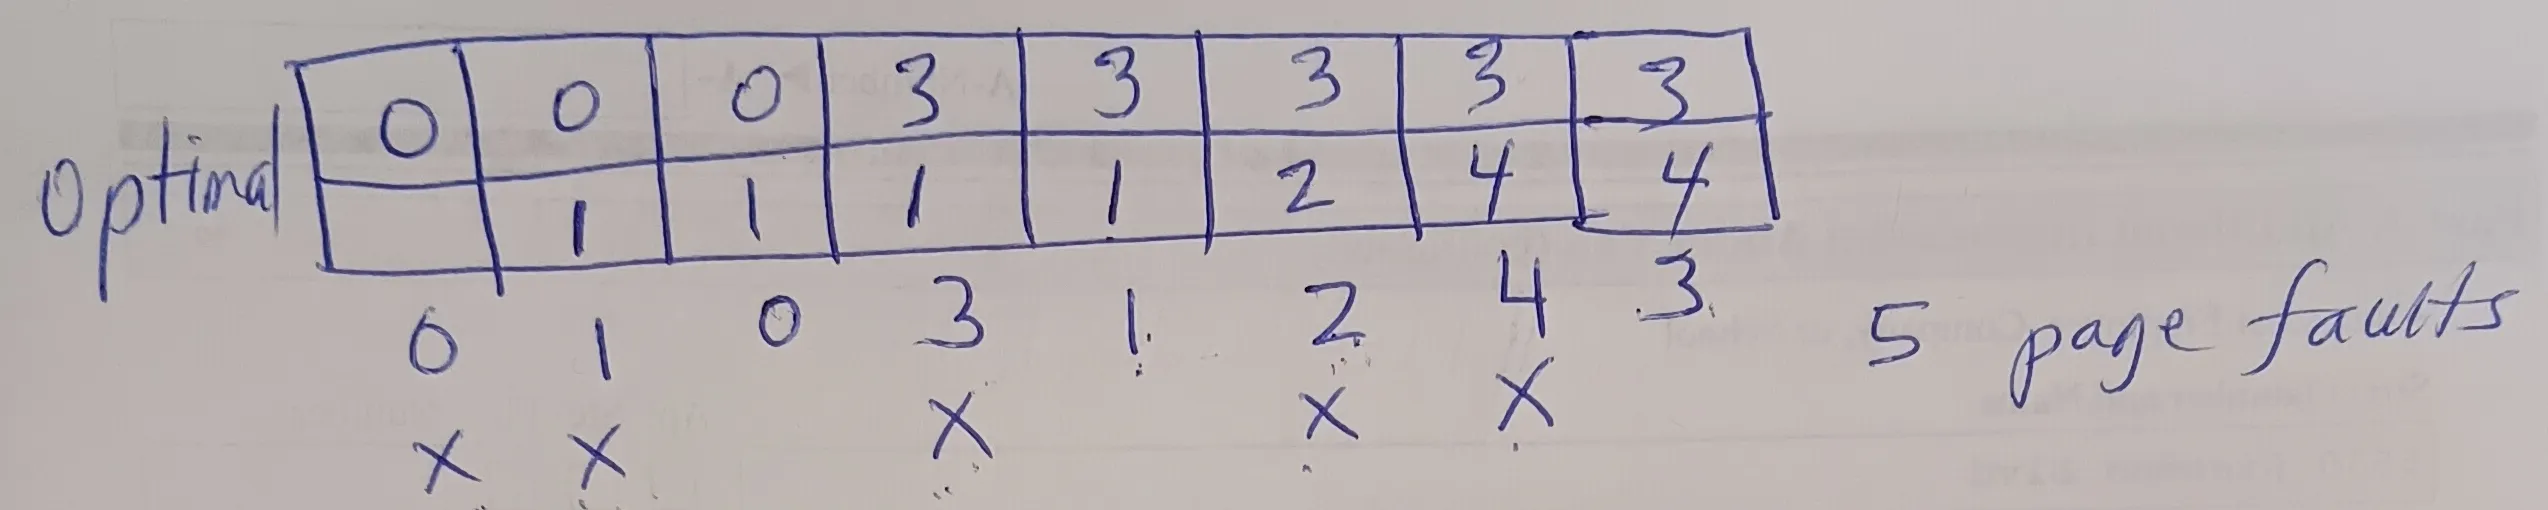 Optimal
0 0 0 3 3 3 3 3
1 1 1 1 2 4 4
0 1 0 3 1 2 4 3
5 page faults
x x x x x